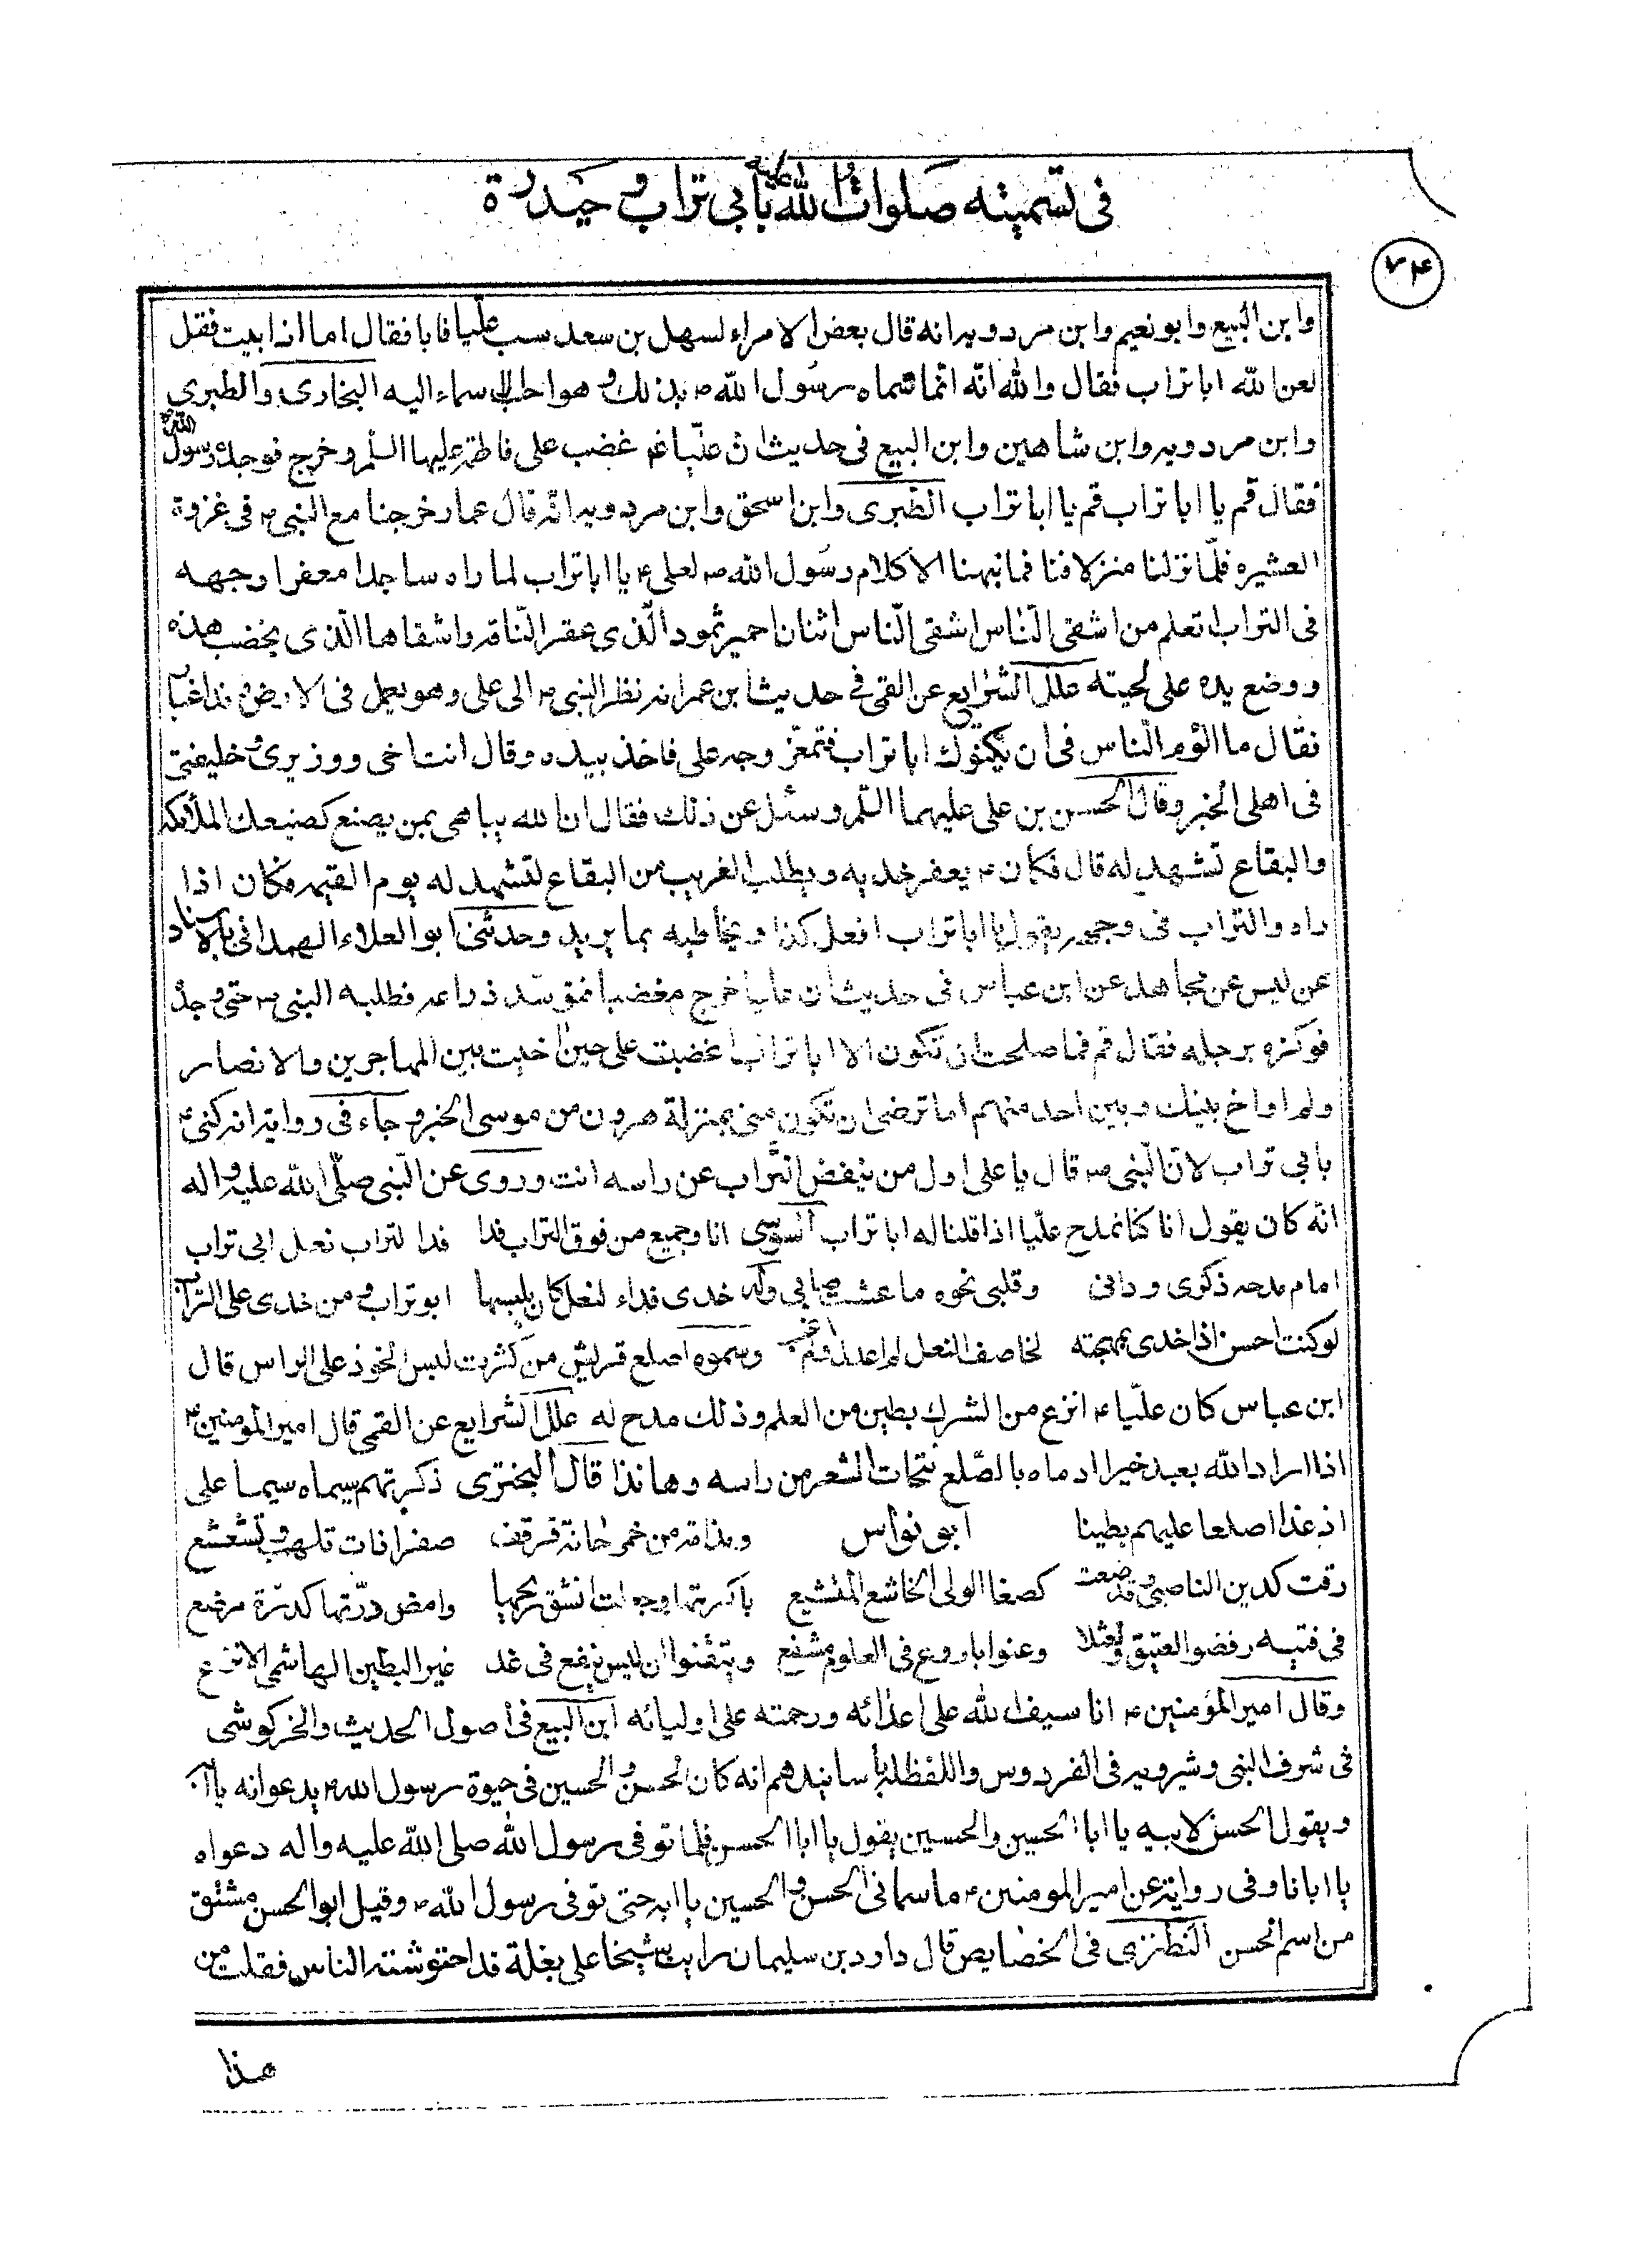 فى تسميته صلوات الله عليه بابى تراب و حيدرة
٧٤
وابن البيع وابو نعيم وابن مردويه انه قال بعض الامراء لسهل بن سعد سب عليا فابا فقال اما اذا ابيت فقل
لعن الله ابا تراب فقال والله انه انما سماه رسول الله ص بذلك و هو احب الاسماء اليه البخارى والطبرى
وابن مردويه وابن شاهين وابن البيع فى حديث ان عليا ع غضب على فاطمة عليها السلم وخرج فوجده رسول الله ص
فقال قم يا ابا تراب قم يا ابا تراب الطبرى وابن اسحق وابن مردويه انه قال عمار خرجنا مع النبى ص فى غزوة
العشيره فلما نزلنا منزلا فنمنا فما نبهنا الا كلام رسول الله ص لعلى ع يا ابا تراب لما راه ساجدا معفرا وجهه
فى التراب اتعلم من اشقى الناس اشقى الناس اثنان احمير ثمود الذى عقر الناقه واشقاها الذى يخضب هذه
و وضع يده على لحيته علل الشرايع عن القمى فى حديث ابن عمر انه نظر النبى ص الى على وهو يعمل فى الارض و قد اغبار
فقال ما الوم الناس فى ان يكنوك ابا تراب فتمغر وجه على فاخذ بيده وقال انت اخى ووزيرى و خليفتى
فى اهلى الخبر وقال الحسن بن على عليهما السلم وسئل عن ذلك فقال ان الله يباهى بمن يصنع كصنيعك الملائكه
والبقاع تشهد له قال فكان ع يعفر خديه ويطلب الغريب من البقاع لتشهد له يوم القيمه فكان اذا
راه والتراب فى وجهه يقول يا ابا تراب افعل كذا ويخاطبه بما يريد وحدثنى ابو العلاء الهمدانى بالاسناد
عن ليس عن مجاهد عن ابن عباس فى حديث ان عليا خرج مغضبا فتوسد ذراعه فطلبه النبى ص حتى وجده
فوكزه برجله فقال قم فما صلحت ان تكون الا ابا تراب اغضبت على حين اخيت بين المهاجرين والانصار
ولم اواخ بينك وبين احد منهم اما ترضى ان تكون منى بمنزلة هرون من موسى الخبر و جاء فى رواية انه كنى ع
بابى تراب لان النبى ص قال يا على اول من ينفض التراب عن راسه انت وروى عن النبى صلى الله عليه واله
انه كان يقول انا كنا نمدح عليا اذا قلنا له ابا تراب السوسى انا وجميع من فوق التراب فدا فدا لتراب نعل ابى تراب
امام مدحه ذكرى ودابى وقلبى نحوه ما عشت صابى وله خدى فداء لنعل كان يلبسها ابو تراب و من خدى على التراب
لو كنت احسن اذا خدى بمهجته لخاصف النعل لم اعدل وسموه اصلع قريش من كثرت لبس الخوذ على الراس قال
ابن عباس كان عليا ع انزع من الشرك بطين من العلم وذلك مدح له علل الشرايع عن القمى قال امير المومنين ع
اذا اراد الله بعبد خيرا رماه بالصلع فتحات الشعر من راسه وها انا ذا قال البحترى ذكرتهم سيماه سيما على
اذ غذا اصلعا عليهم بطينا ابو نواس ومدامة من خمر حانة قرقف صفرا ذات تلهب و تشعشع
رقت كدين الناصبى و قد صفت كصفا الولى الخاشع المتشيع باكرتها وجعلت انشق ريحها وامص درتها كدرة مرضع
فى فتية رفضوا العتيق ونعثلا وعنوا باروع فى العلوم مشفع وتيقنوا ان ليس ينفع فى غد غير البطين الهاشمى الانزع
وقال امير المؤمنين ع انا سيف الله على اعدائه ورحمته على اوليائه ابن البيع فى اصول الحديث والخركوشى
فى شرف النبى وشيرويه فى الفردوس واللفظ له باسانيدهم انه كان الحسن و الحسين فى حيوة رسول الله ص يدعوانه يا ابه
ويقول الحسن لابيه يا ابا الحسين والحسين يقول يا ابا الحسن فلما توفى رسول الله صلى الله عليه واله دعواه
يا ابانا وفى رواية عن امير المومنين ع ما سمانى الحسن و الحسين يا ابه حتى توفى رسول الله ص وقيل ابو الحسن مشتق
من اسم الحسن النطنزى فى الخصايص قال داود بن سليمان رايت شيخا على بغلة قد احتوشته الناس فقلت من
هذا